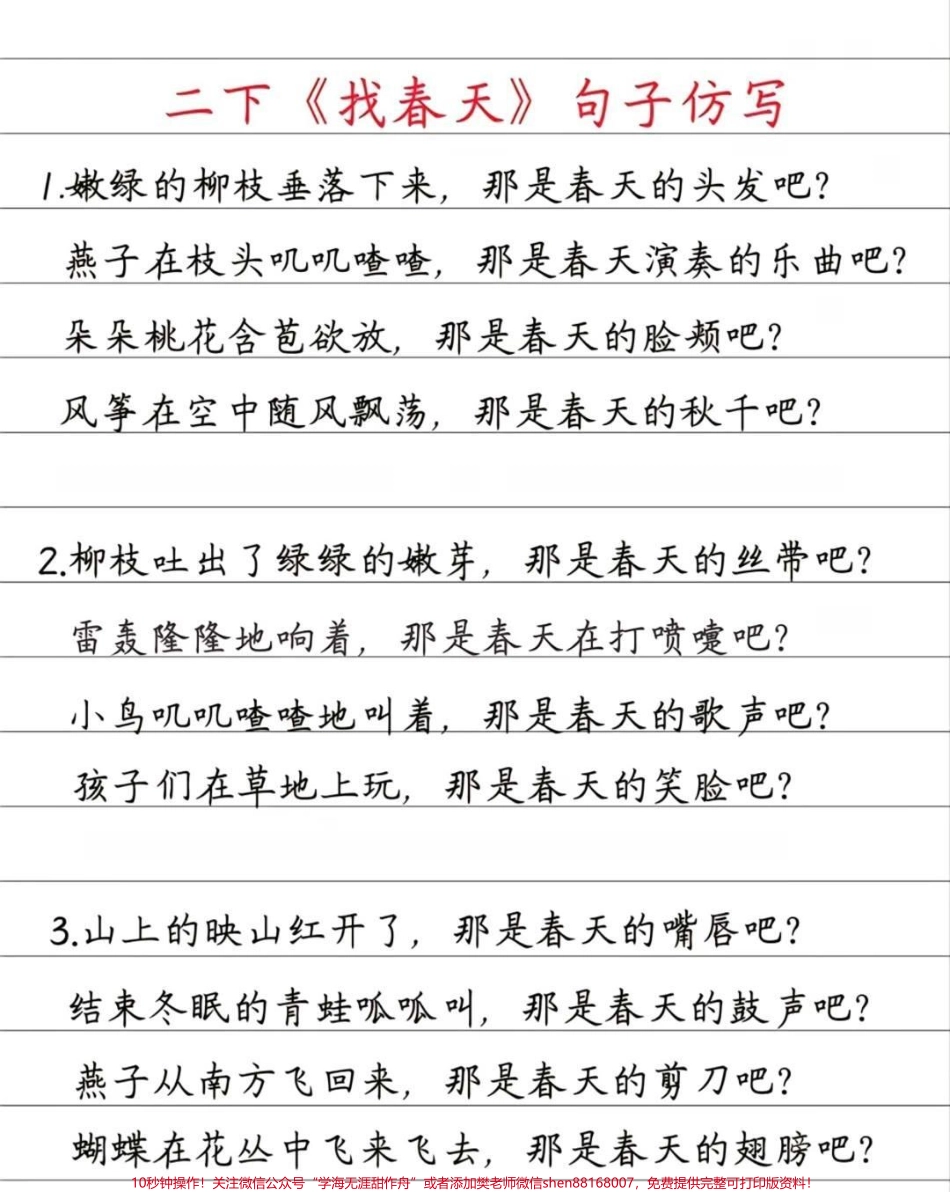 二下《找春天》句子仿写
1.嫩绿的柳枝垂落下来，那是春天的头发吧？
燕子在枝头叽叽喳喳，那是春天演奏的乐曲吧？
朵朵桃花含苞欲放，那是春天的脸颊吧？
风筝在空中随风飘荡，那是春天的秋千吧？
2.柳枝吐出了绿绿的嫩芽，那是春天的丝带吧？
雷轰隆隆地响着，那是春天在打喷嚏吧？
小鸟叽叽喳喳地叫着，那是春天的歌声吧？
孩子们在草地上玩，那是春天的笑脸吧？
3.山上的映山红开了，那是春天的嘴唇吧？
结束冬眠的青蛙呱呱叫，那是春天的鼓声吧？
燕子从南方飞回来，那是春天的剪刀吧？
蝴蝶在花丛中飞来飞去，那是春天的翅膀吧？
10秒钟操作！关注微信公众号“学海无涯甜作舟”或者添加樊老师微信shen88168007，免费提供完整可打印版资料！